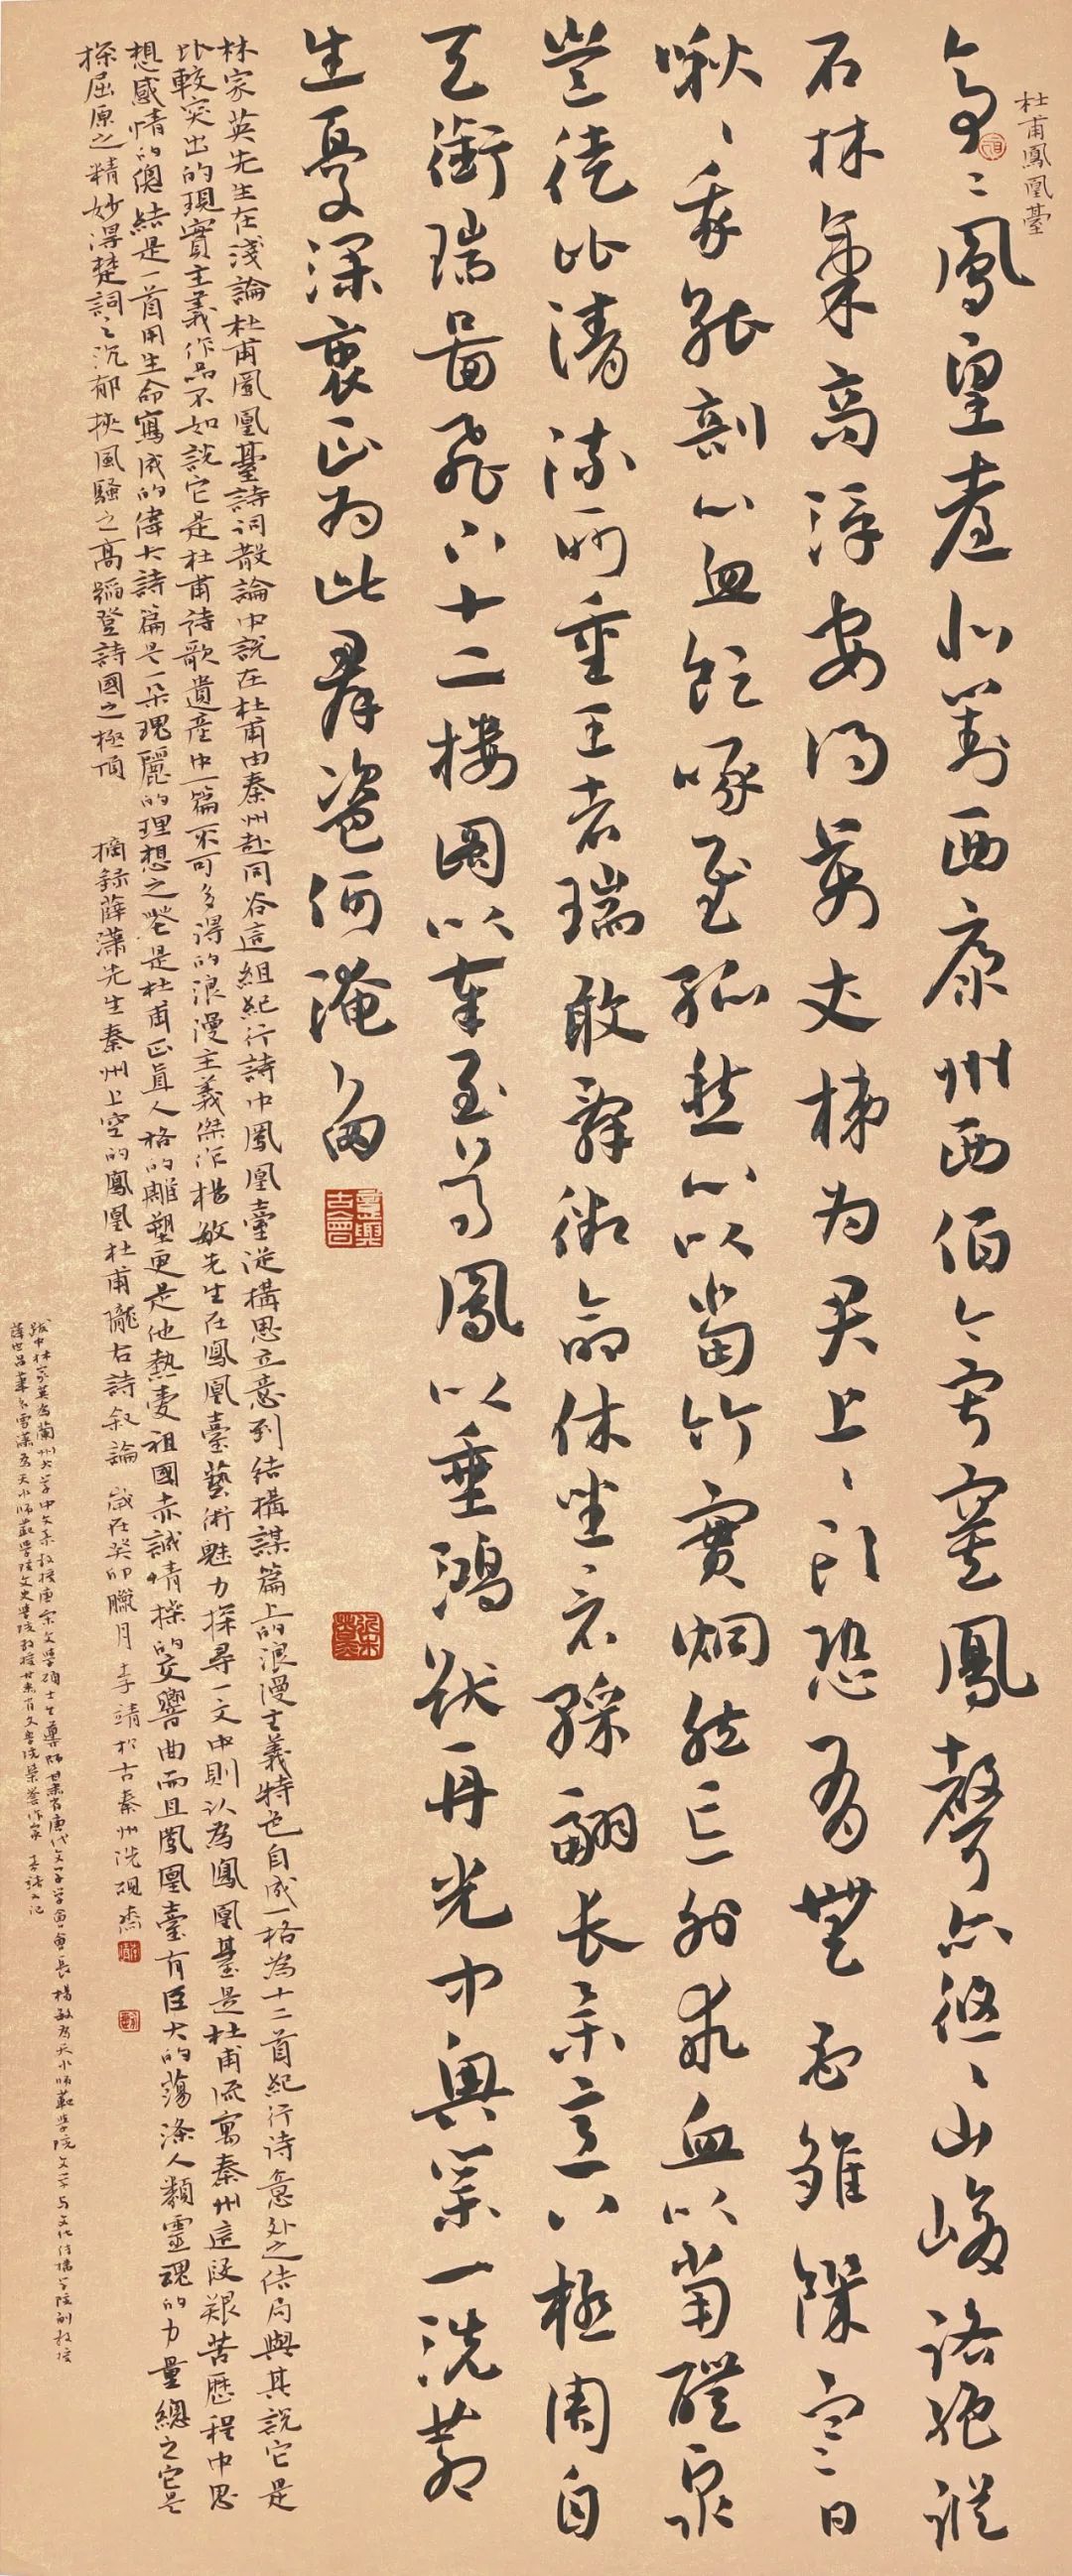 杜甫鳳凰臺
亭亭鳳凰臺北對西康州西伯今寂寞鳳聲亦悠悠山峻路絕蹤
石林氣高浮安得萬丈梯為君上上頭恐有無母雛飢寒日
啾啾我能剖心血飲啄慰孤愁心以當竹實炯然忘外求血以當醴泉
豈徒比清流所重王者瑞敢辭微命休坐看綵翮長舉意八極周自
天銜瑞圖飛下十二樓圖以奉至尊鳳以垂鴻猷再光中興業一洗蒼
生憂深衷正為此群盜何淹留
林家英先生在淺論杜甫鳳凰臺詩詞散論中說在杜甫由秦州赴同谷這組紀行詩中鳳凰臺從構思立意到結構謀篇上的浪漫主義特色自成一格為十二首紀行詩意外之佳局與其說它是
比較突出的現實主義作品不如說它是杜甫詩歌遺產中一篇不可多得的浪漫主義傑作楊敏先生在鳳凰臺藝術魅力探尋一文中則認為鳳凰臺是杜甫流寓秦州這段艱苦歷程中思
想感情的總結是一首用生命寫成的偉大詩篇是一朵瑰麗的理想之花是杜甫正直人格的雕塑更是他熱愛祖國赤誠情操的交響曲而且鳳凰臺有巨大的蕩滌人類靈魂的力量總之它是
探屈原之精妙得楚詞之沉郁挾風騷之高蹈登詩國之極頂 摘錄薛瀟先生秦州上空的鳳凰杜甫隴右詩敘論 歲在癸卯臘月李靖於古秦州洗硯齋
跋中林家英為蘭州大學中文系教授唐宋文學碩士生導師甘肅省唐代文學學會會長楊敏為天水師範學院文學與文化傳播學院副教授
薛世昌筆名雪瀟為天水師範學院文史學院教授甘肅省文學院榮譽作家 李靖又記